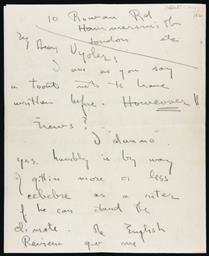 10 Rowan Rd.
Hammersmith
London
My dear
I am as you say
a to have
written before. However!!
News?
I dunno.
yes. humbly is by way
of gittin more or less
celebre as a
if he can stand the
climate. The English
Review give me